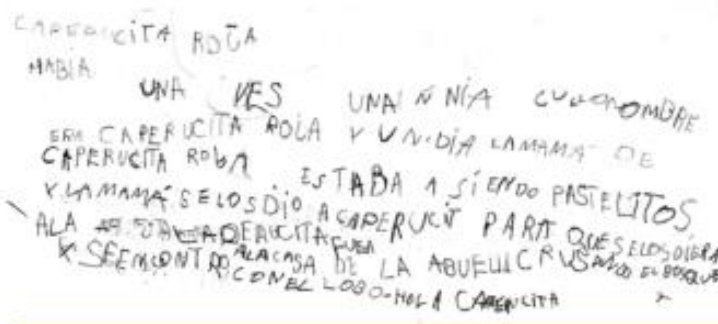 CAPERUCITA ROJA
HABIA UNA VES UNA NIÑIA CUYONOMBRE
ERA CAPERUCITA ROJA Y UN.DIA LAMAMA DE
CAPERUCITA ROJA ESTABA ASIENDO PASTELITOS
Y LA MAMÁ SELOSDIO A CAPERUCIT PARA QUESELOSDIERA
ALA CAPERUCITA FUEA
ALACASA DE LA ABUELI CRUSANDO ELBOSQUE
Y SEENCONTRO CONEL LOBO-HOLA CAPERUCITA